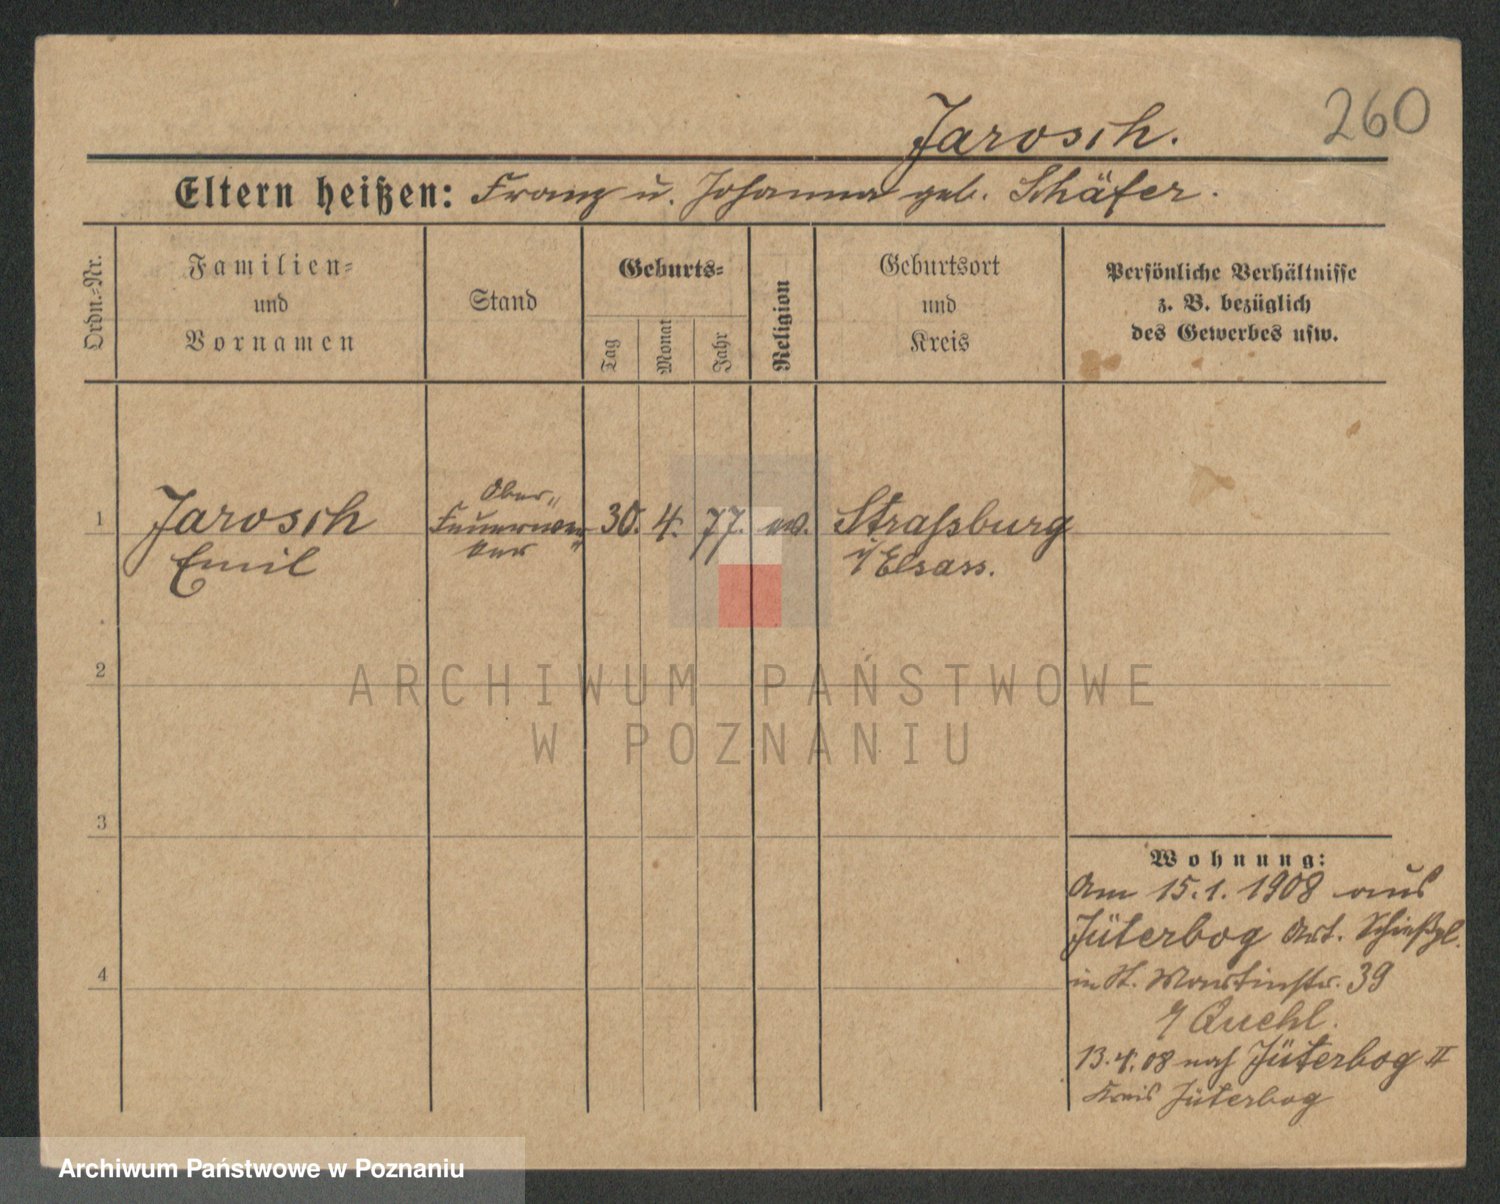 260
Jarosch.
Eltern heißen: Franz u. Johanna geb. Schäfer.
Ordn.-Nr.
Familien-
und
Vornamen
Stand
Geburts-
Tag
Monat
Jahr
Religion
Geburtsort
und
Kreis
Persönliche Verhältnisse
z. B. bezüglich
des Gewerbes usw.
1 Jarosch Ober- 30. 4. 77. ev. Straßburg
Emil Feuerwer- i/Elsass.
ker
2
3
4
Wohnung:
Am 15.1.1908 aus
Jüterbog Art. Schießpl.
in St. Martinstr. 39
Quehl.
13.4.08 nach Jüterbog II
Kreis Jüterbog
ARCHIWUM PAŃSTWOWE
W POZNANIU
Archiwum Państwowe w Poznaniu